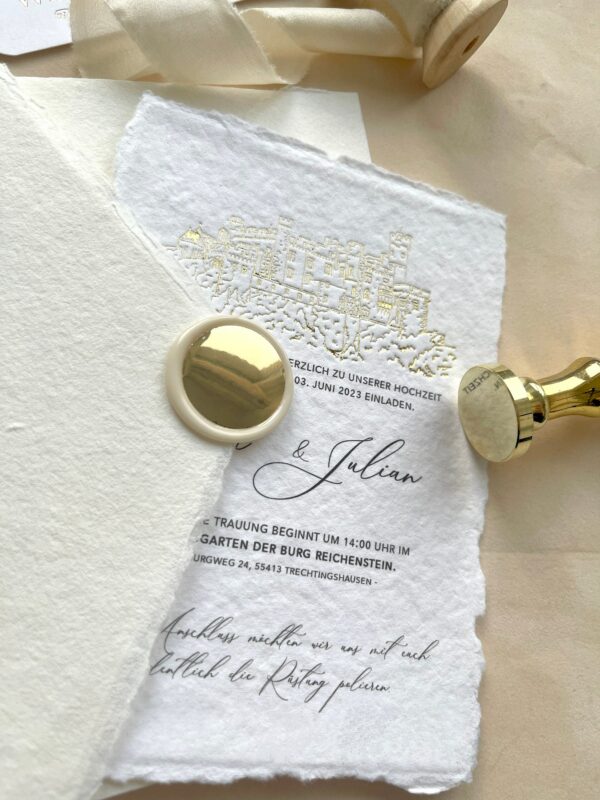 ERZLICH ZU UNSERER HOCHZEIT
03. JUNI 2023 EINLADEN.
& Julian
TRAUUNG BEGINNT UM 14:00 UHR IM
GARTEN DER BURG REICHENSTEIN.
URGWEG 24, 55413 TRECHTINGSHAUSEN -
Anschluss möchten wir uns mit euch
dentlich die Rüstung polieren.